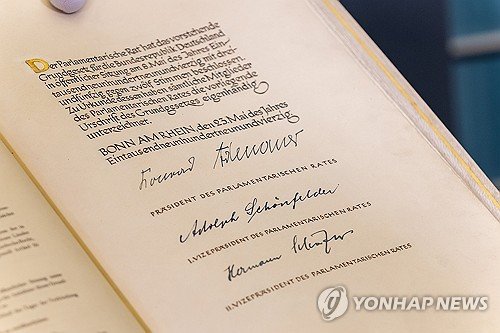 Der Parlamentarische Rat hat das vorstehende
Grundgesetz für die Bundesrepublik Deutschland
in öffentlicher Sitzung am 8. Mai des Jahres Ein-
tausendneunhundertneunundvierzig mit drei-
undfünfzig gegen zwölf Stimmen beschlossen.
Zu Urkunde dessen haben sämtliche Mitglieder
des Parlamentarischen Rates die vorliegende
Urschrift des Grundgesetzes eigenhändig
unterzeichnet.
BONN AM RHEIN, den 23. Mai des Jahres
Eintausendneunhundertneunundvierzig
Konrad Adenauer
PRÄSIDENT DES PARLAMENTARISCHEN RATES
Adolph Schönfelder
I. VIZEPRÄSIDENT DES PARLAMENTARISCHEN RATES
Hermann
II. VIZEPRÄSIDENT DES PARLAMENTARISCHEN RATES
YONHAP NEWS